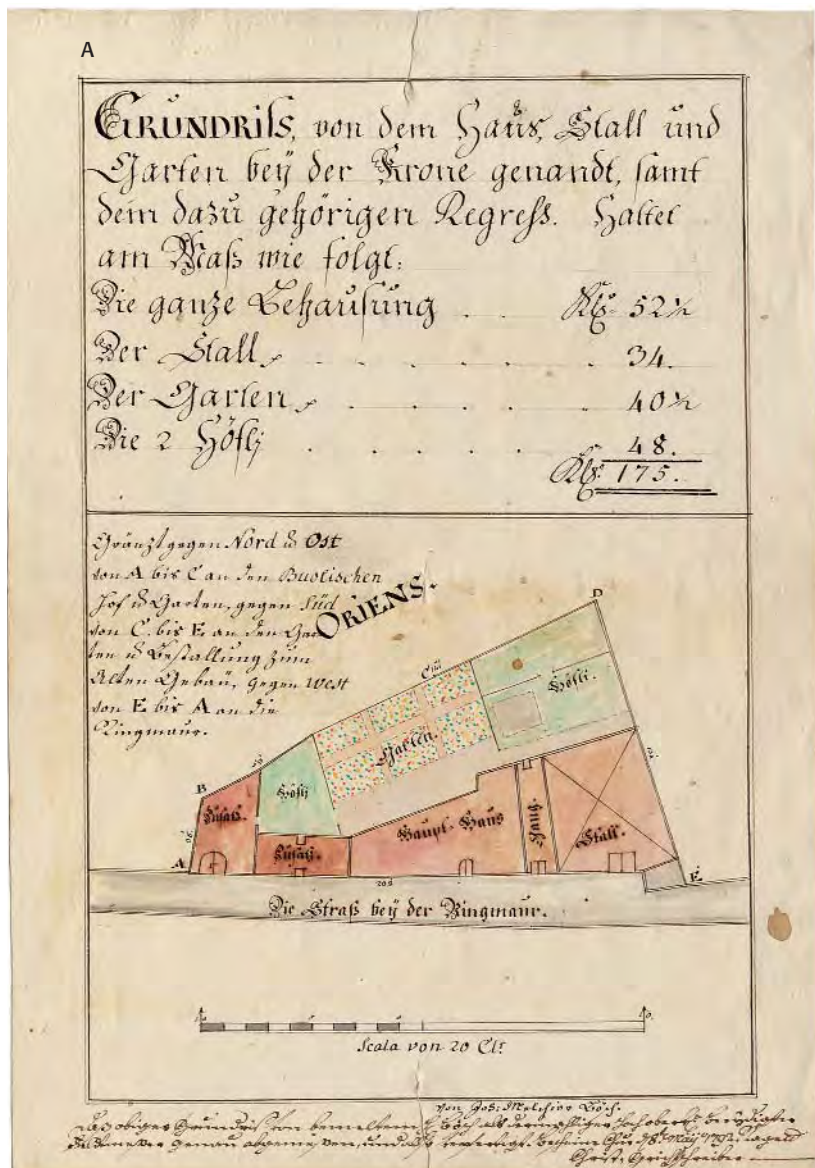 A
GRUNDRISS, von dem Haus, Stall und
Garten beÿ der Krone genandt, samt
dem dazu gehörigen Regress. Haltet
am Maß wie folgt:
Die ganze Behausung . . Klft. 52½
Der Stall . . . . . . 34.
Der Garten . . . . . 40½
Die 2 Höflj . . . . . 48.
Klft. 175.
Gränzt gegen Nord & Ost
von A bis C an den Buolischen
Hof & Garten, gegen Süd
von C. bis E an den Gar
ten & Bestallung zum
Alten Gebäu, gegen West
von E bis A an die
Ringmaur.
ORIENS.
D
C
Höfli.
Garten.
B
Höflj
Zusatz.
Zusatz.
Haupt-Haus
Gang.
Stall.
A
E
Die Straß beÿ der Ringmaur.
Scala von 20 Clr
von Jos: Melchior Böch.